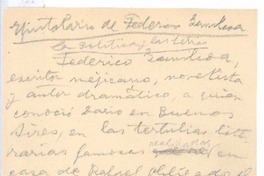 Epistolario de Federico Gamboa
La política y las letras
Federico Gamboa,
escritor mejicano, novelista
y autor dramático, a quien
conoció Darío en Buenos
Aires, en las tertulias lite
rarias famosas realizadas en
casa de Rafael Obligado, el